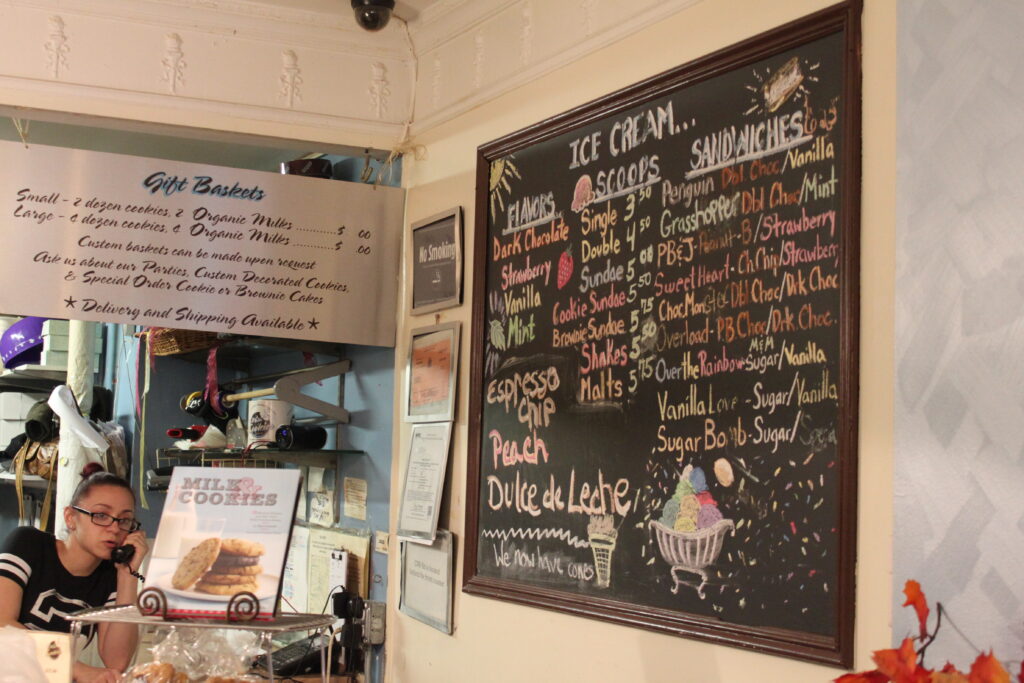 Gift Baskets
Small - 2 dozen cookies, 2 Organic Milks ............ $ .00
Large - 4 dozen cookies, 4 Organic Milks ............ $ .00
Custom baskets can be made upon request
Ask us about our Parties, Custom Decorated Cookies,
& Special Order Cookie or Brownie Cakes
★ Delivery and Shipping Available ★
No Smoking
MILK &
COOKIES
ICE CREAM...
FLAVORS
Dark Chocolate
Strawberry
Vanilla
Mint
Espresso
Chip
Peach
Dulce de Leche
We now have cones
SCOOPS
Single 3.50
Double 4.50
Sundae 5.00
Cookie Sundae 5.50
Brownie Sundae 5.75
Shakes 5.50
Malts 5.75
SANDWICHES
Penguin Dbl. Choc./Vanilla
Grasshopper Dbl Choc/Mint
PB&J- Peanut-B/Strawberry
Sweet Heart- Ch.Chip/Strawberr
Choc Monster Dbl Choc/Drk Choc
Overload- PB Choc/Drk Choc.
Over the Rainbow- M&M Sugar/Vanilla
Vanilla Love - Sugar/Vanilla
Sugar Bomb- Sugar/